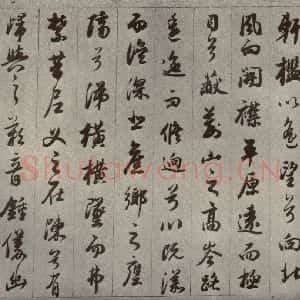 軒檻以遙望兮向北
風而開襟平原遠而極
目兮蔽荊山之高岑路
逶迤而修迥兮川既漾
而濟深悲舊鄉之壅
隔兮涕橫橫墜而弗
禁昔尼父之在陳兮有
歸與之歎音鍾儀幽
Shufawang.CN